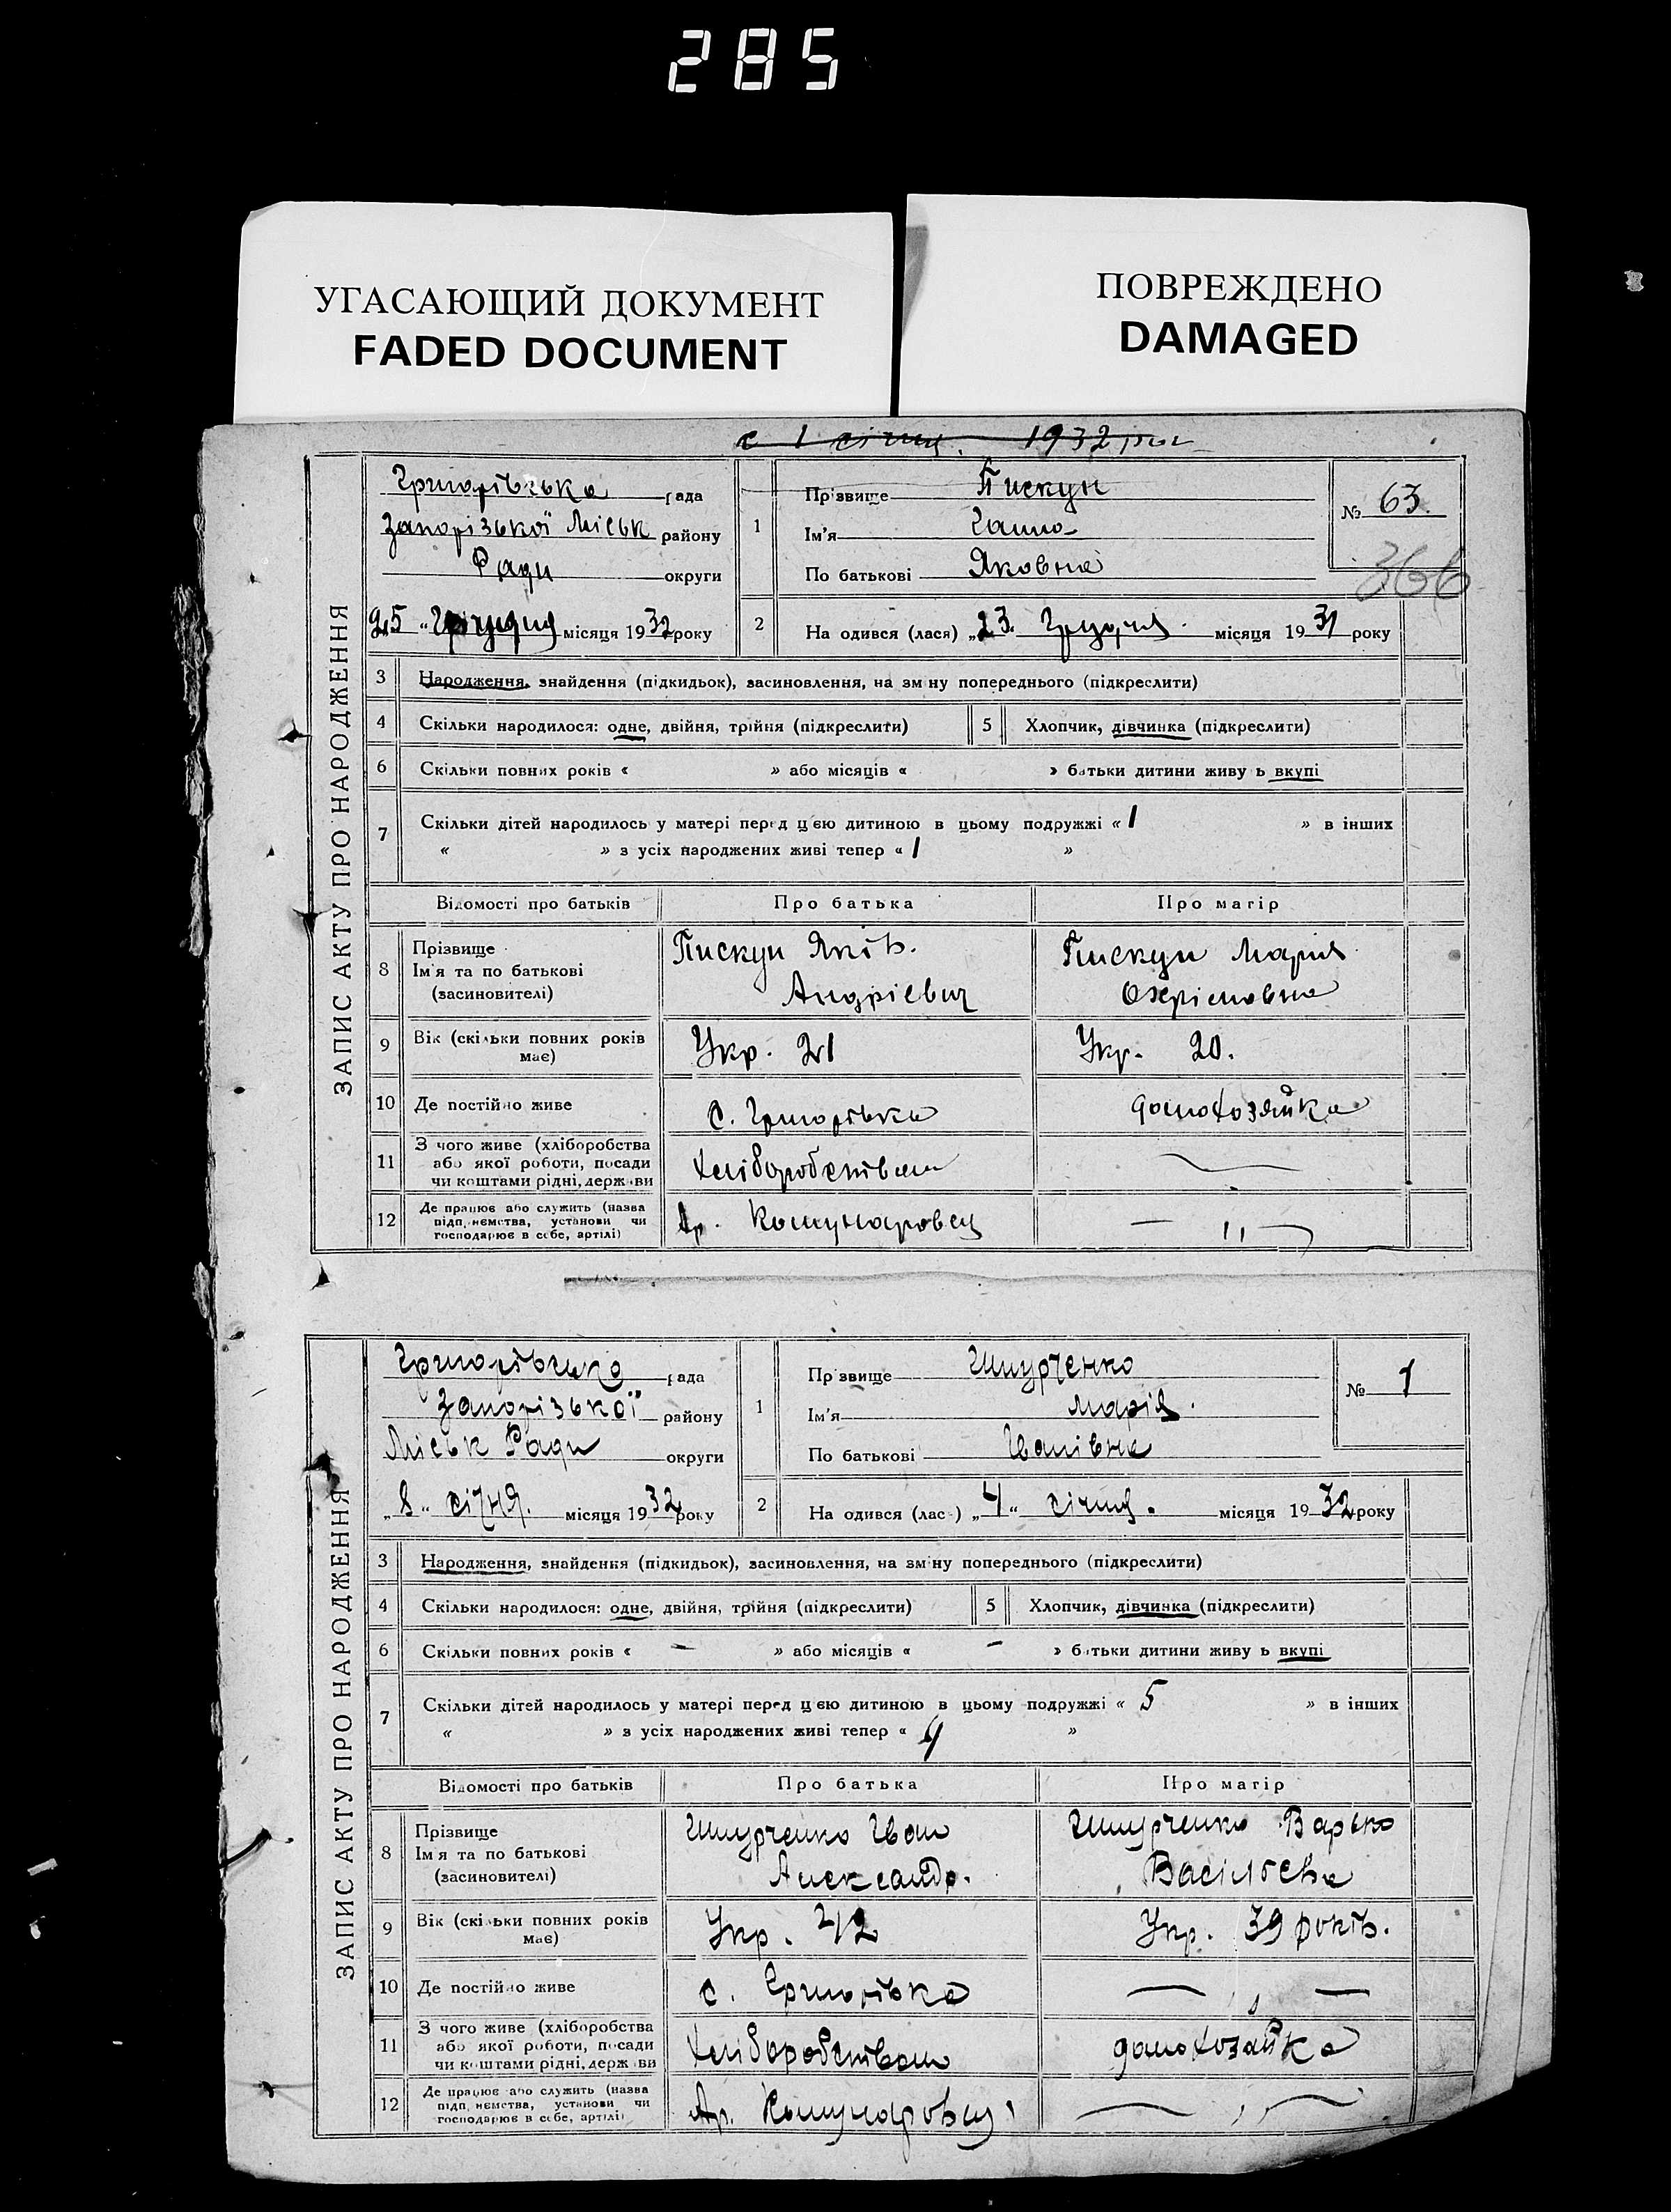 285
УГАСАЮЩИЙ ДОКУМЕНТ
FADED DOCUMENT
ПОВРЕЖДЕНО
DAMAGED
с 1 січня. 1932 року
ЗАПИС АКТУ ПРО НАРОДЖЕННЯ
Григорівська рада
Запорізької Міськ району
Ради округи
25 " Грудня місяця 1932 року
1 Прізвище Пискун
Ім'я Ганна
По батькові Яковна
№ 63.
366
2 На одився (лася) „23. Грудня місяця 1931 року
3 Народження, знайдення (підкидьок), засиновлення, на зм ну попереднього (підкреслити)
4 Скільки народилося: одне, двійня, трійня (підкреслити) 5 Хлопчик, дівчинка (підкреслити)
6 Скільки повних років « » або місяців « » батьки дитини живу ь вкупі
7 Скільки дітей народилось у матері перед цією дитиною в цьому подружжі « 1 » в інших
« » з усіх народжених живі тепер « 1 »
Відомості про батьків Про батька Про матір
8 Прізвище Ім'я та по батькові (засиновителі) Пискун Яків. Андрієвич Пискун Мария Охрімовна
9 Вік (скільки повних років має) Укр. 21 Укр. 20.
10 Де постійно живе с. Григорівка домохозяйка
11 З чого живе (хліборобства або якої роботи, посади чи коштами рідні, держави Хліборобством
12 Де працює або служить (назва підприємства, установи чи господарює в себе, артілі) Ар. Комунаровец — " —
ЗАПИС АКТУ ПРО НАРОДЖЕННЯ
Григорівська рада
Запорізької району
Міськ Ради округи
„8 " січня. місяця 1932 року
1 Пр звище
Ім'я Марія.
По батькові Іванівна
№ 1
2 На одився (лас ) „4 " січня. місяця 1932 року
3 Народження, знайдення (підкидьок), засиновлення, на зм ну попереднього (підкреслити)
4 Скільки народилося: одне, двійня, трійня (підкреслити) 5 Хлопчик, дівчинка (підкреслити)
6 Скільки повних років « — » або місяців « — » батьки дитини живу ь вкупі
7 Скільки дітей народилось у матері перед цією дитиною в цьому подружжі « 5 » в інших
« » з усіх народжених живі тепер « 4 »
Відомості про батьків Про батька Про матір
8 Прізвище Ім'я та по батькові (засиновителі) Іван Александр. Варька Васільєвна
9 Вік (скільки повних років має) Укр. 42 Укр. 39 років.
10 Де постійно живе с. Григорівка — " —
11 З чого живе (хліборобства або якої роботи, посади чи коштами рідні, держави Хліборобством домохозайка
12 Де працює або служить (назва підприємства, установи чи господарює в себе, артілі) Ар. Комунаровец — " —